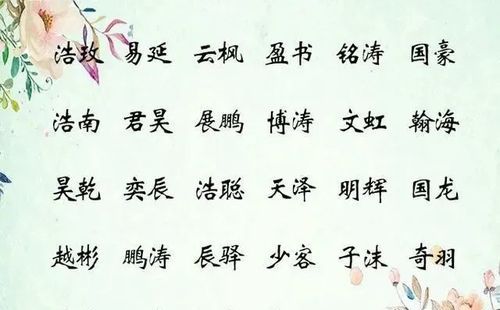 浩玫 易延 云枫 盈书 铭涛 国豪
浩南 君昊 展鹏 博涛 文虹 翰海
昊乾 奕辰 浩聪 天泽 明辉 国龙
越彬 鹏涛 辰驿 少客 子沫 奇羽